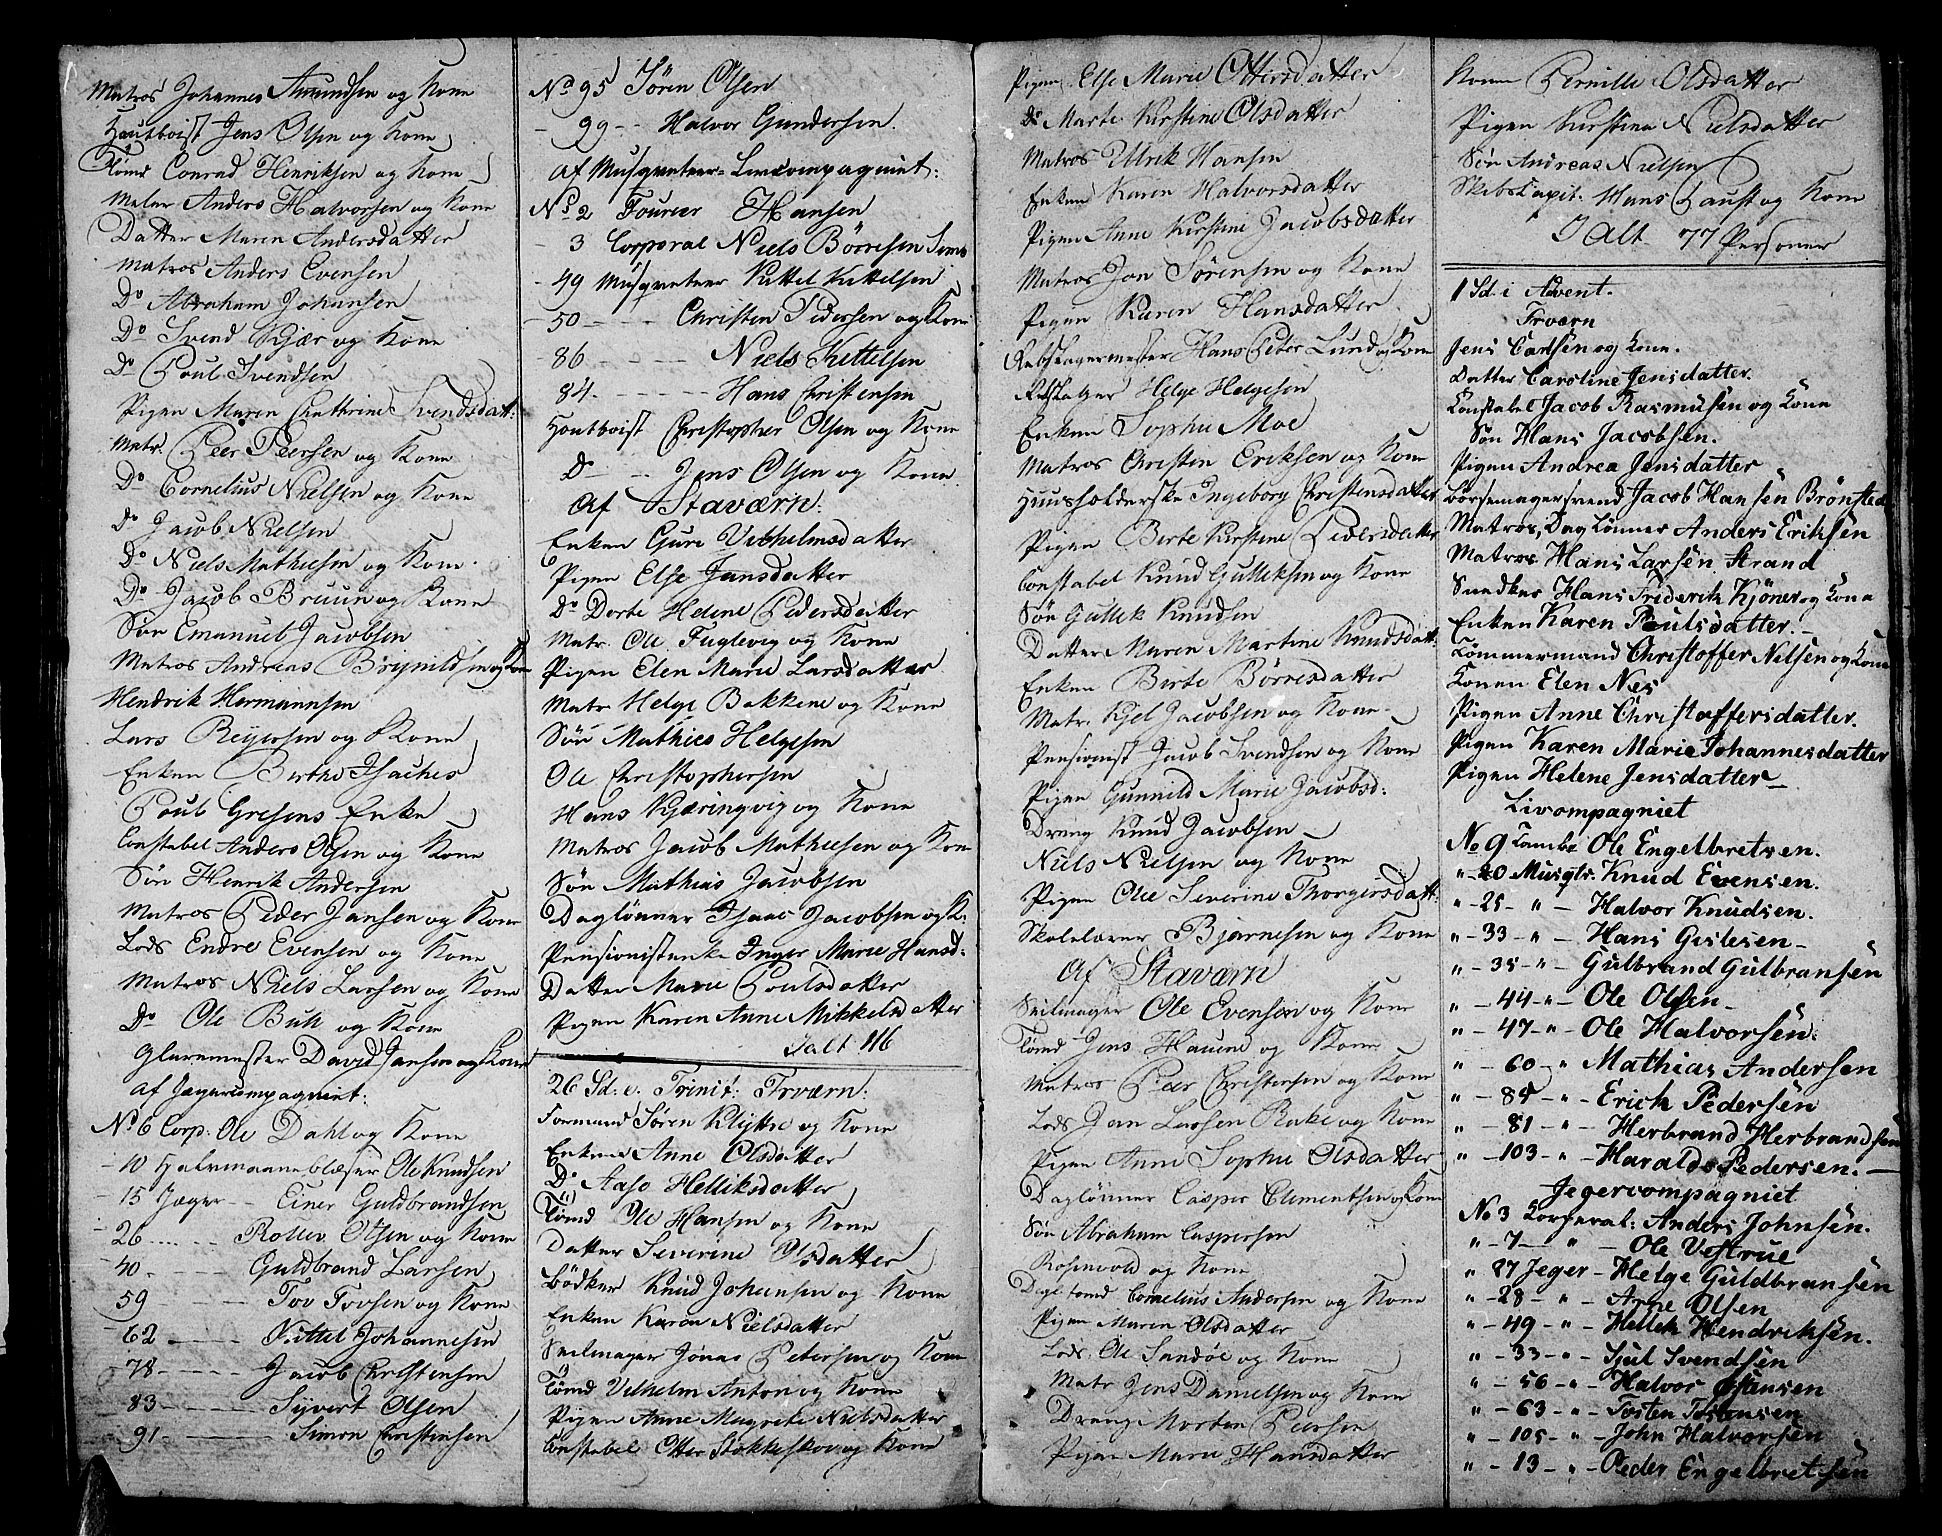 Matros Johannes Amundsen og Kone
Houtboist Jens Olsen og Kone
Tömd Conrad Henriksen og Kone
Maler Anders Halvorsen og Kone
Datter Maren Andersdatter
Matros Anders Evensen
Do Abraham Johansen
Do Svend Kjær og Kone
Do Poul Svendsen
Pigen Maren Cathrine Svendsdatt:
Matr. Peer Peersen og Kone
Do Cornelius Nielsen og Kone
Do Jacob Nielsen
Do Niels Mathiesen og Kone
Do Jacob Bruun og Kone
Sön Emanuel Jacobsen
Matros Andreas Brynildsen og Kone
Hendrik Hermannsen
Lars Reyersen og Kone
Enken Birthe Isachs
Poul Gresens Enke
Constabel Anders Olsen og Kone
Sön Henrik Andersen
Matros Peder Jansen og Kone
Lods Endre Evensen og Kone
Matros Niels Larsen og Kone
Do Ole Buk og Kone
Glarmester David Jansen og Kone
Af Jægercompagniet:
No 6 Corp. Ole Dahl og Kone
- 10 Halvmaaneblæser Ole Knudsen
- 15 Jæger - Einer Guldbrandsen
- 26 Rollev Olsen og Kone
- 40 Guldbrand Larsen
59 Tov Tovsen og Kone
62 Kittel Johannesen
- 78 Jacob Christensen
- 83 Syvert Olsen
- 91 Simon Christensen
No 95 Sören Olsen
- 99 - Halvor Gundersen.
Af Musqueteer-Livcompagniet:
No 2 Fourier Hansen
- 3 Corporal Niels Börresen
- 49 Musqueteer Kittel Kittelsen
- 50 Christen Pedersen og Kone
- 86 Niels Kettelsen
84. Hans Christensen
Houtboist Christopher Olsen og Kone
Do Jens Olsen og Kone
Af Staværn:
Enken Guri Vilhelmsdatter
Pigen Else Jansdatter
Do Dorte Helene Pedersdatter
Matr. Ole Fuglevig og Kone
Pigen Elen Marie Larsdatter
Matr Helge Bakkene og Kone
Sön Mathies Helgesen
Ole Christophersen
Hans Kjæringvig og Kone
Matros Jacob Mathiesen og Kone
Sön Mathias Jacobsen
Daglönner Isaac Jacobsen og K:
Pensionistenke Inger Marie Hansd:
Datter Marie Poulsdatter
Pigen Karen Anne Mikkelsdatter
Ialt 116
26 Sd. e. Trinit: Frværn:
Formand Sören Klykke og Kone
Enken Anne Olsdatter
Do Aase Helliksdatter
Tömd Ole Hansen og Kone
Datter Severine Olsdatter
Bödker Knud Johansen og Kone
Enken Karen Nielsdatter
Seilmager Jonas Petersen og Kone
Tömd Vilhelm Anton og Kone
Pigen Anne Magrete Nielsdatter
Constabel Otter Stokkeskov og Kone
Pigen Else Marie Ottersdatter
Do Marte Kirstine Olsdatter
Matros Ulrik Hansen
Enken Karen Halvorsdatter
Pigen Anne Kirstine Jacobsdatter
Matros Jon Sörensen og Kone
Pigen Karen Hansdatter
Rebslagermester Hans Peter Lund og Kone
Rebslager Helge Helgesen
Enken Sophie Moe
Matros Christen Eriksen og Kone
Huusholderske Ingeborg Christensdatter
Pigen Birte Kirstine Pedersdatter
Constabel Knud Gulleksen og Kone
Sön Gullek Knudsen
Datter Maren Martine Knudsdatt:
Enken Birte Börresdatter
Matr. Kjel Jacobsen og Kone
Pensionist Jacob Svendsen og Kone
Pigen Gunnild Marie Jacobsd:
Dreng Knud Jacobsen
Niels Nielsen og Kone
Pigen Olee Severine Thorgersdatt:
Skolelærer Bjarnesen og Kone
Af Staværn
Seilmager Ole Evensen og Kone
Tömd Jens Hauene og Kone
Matros Peer Christensen og Kone
Lods Jan Larsen Rake og Kone
Pigen Anne Sophie Olsdatter
Daglönner Casper Clementsen og Kone
Sön Abraham Caspersen
Rosenvold og Kone
Cornelius Andersen og Kone
Pigen Maren Olsdatter
Lods Ole Sandöe og Kone
Matr Jens Danielsen og Kone
Dreng Morten Peersen
Pigen Marie Hansdatter
Konen Pernille Olsdatter
Pigen Kirstine Nielsdatter
Sön Andreas Nielsen
Skibskapit. Hans Faust og Kone
I Alt 77 Personer
1 Sd. i Advent.
Frværn
Jens Carlsen og Kone.
Datter Caroline Jensdatter.
Konstabel Jacob Rasmusen og Kone
Sön Hans Jacobsen.
Pigen Andrea Jensdatter
Börsemagersvend Jacob Hansen Brönsted
Matros, Daglönner Anders Eriksen
Matros Hans Larsen Strand
Snedker Hans Friderik Kjöner og Kone
Enken Karen Poulsdatter.
Tömmermand Christoffer Nilsen og Kone
Konen Elen Nes
Pigen Anne Christoffersdatter.
Pigen Karen Marie Johannesdatter
Pigen Helene Jensdatter
Livcompagniet
No 9 Tamb: Ole Engelbretsen.
" 20 Musqtr. Knud Evensen.
" - 25 - " - Halvor Knudsen.
" - 33 - " - Hans Gislesen
" - 35 - " - Gulbrand Gulbransen
" - 44 - " - Ole Olsen
" - 47 - " - Ole Halvorsen.
" - 60 - " Mathias Andersen
" - 84 - " - Erich Pedersen
" - 81 - " - Herbrand Herbrandsen
" - 103 - " - Harald Pedersen.
Jegercompagniet
No 3 Korperal: Anders Johnsen.
" - 7 - " - Ole Vestrue
" 87 Jeger - Helge Guldbransen
" - 28 - " - Arne Olsen
" - 49 - " - Hellek Hendriksen.
" - 33 - " - Sjul Svendsen
" - 56 - " - Halvor Östensen
" - 63 - " - Tosten Tostensen
" - 105 - " - John Halvorsen
" - 13 - " - Peder Engelbretsen